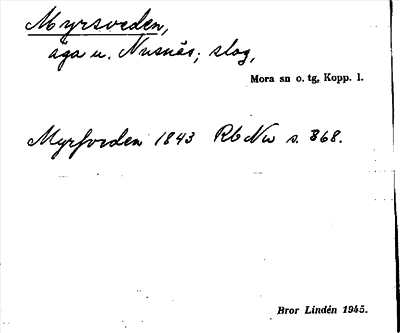 Myrsveden,
äga u. Nusnäs; slog,
Mora sn o. tg, Kopp. l.
Myrfvrden 1843 Rb Nw s. 868.
Bror Lindén 1945.